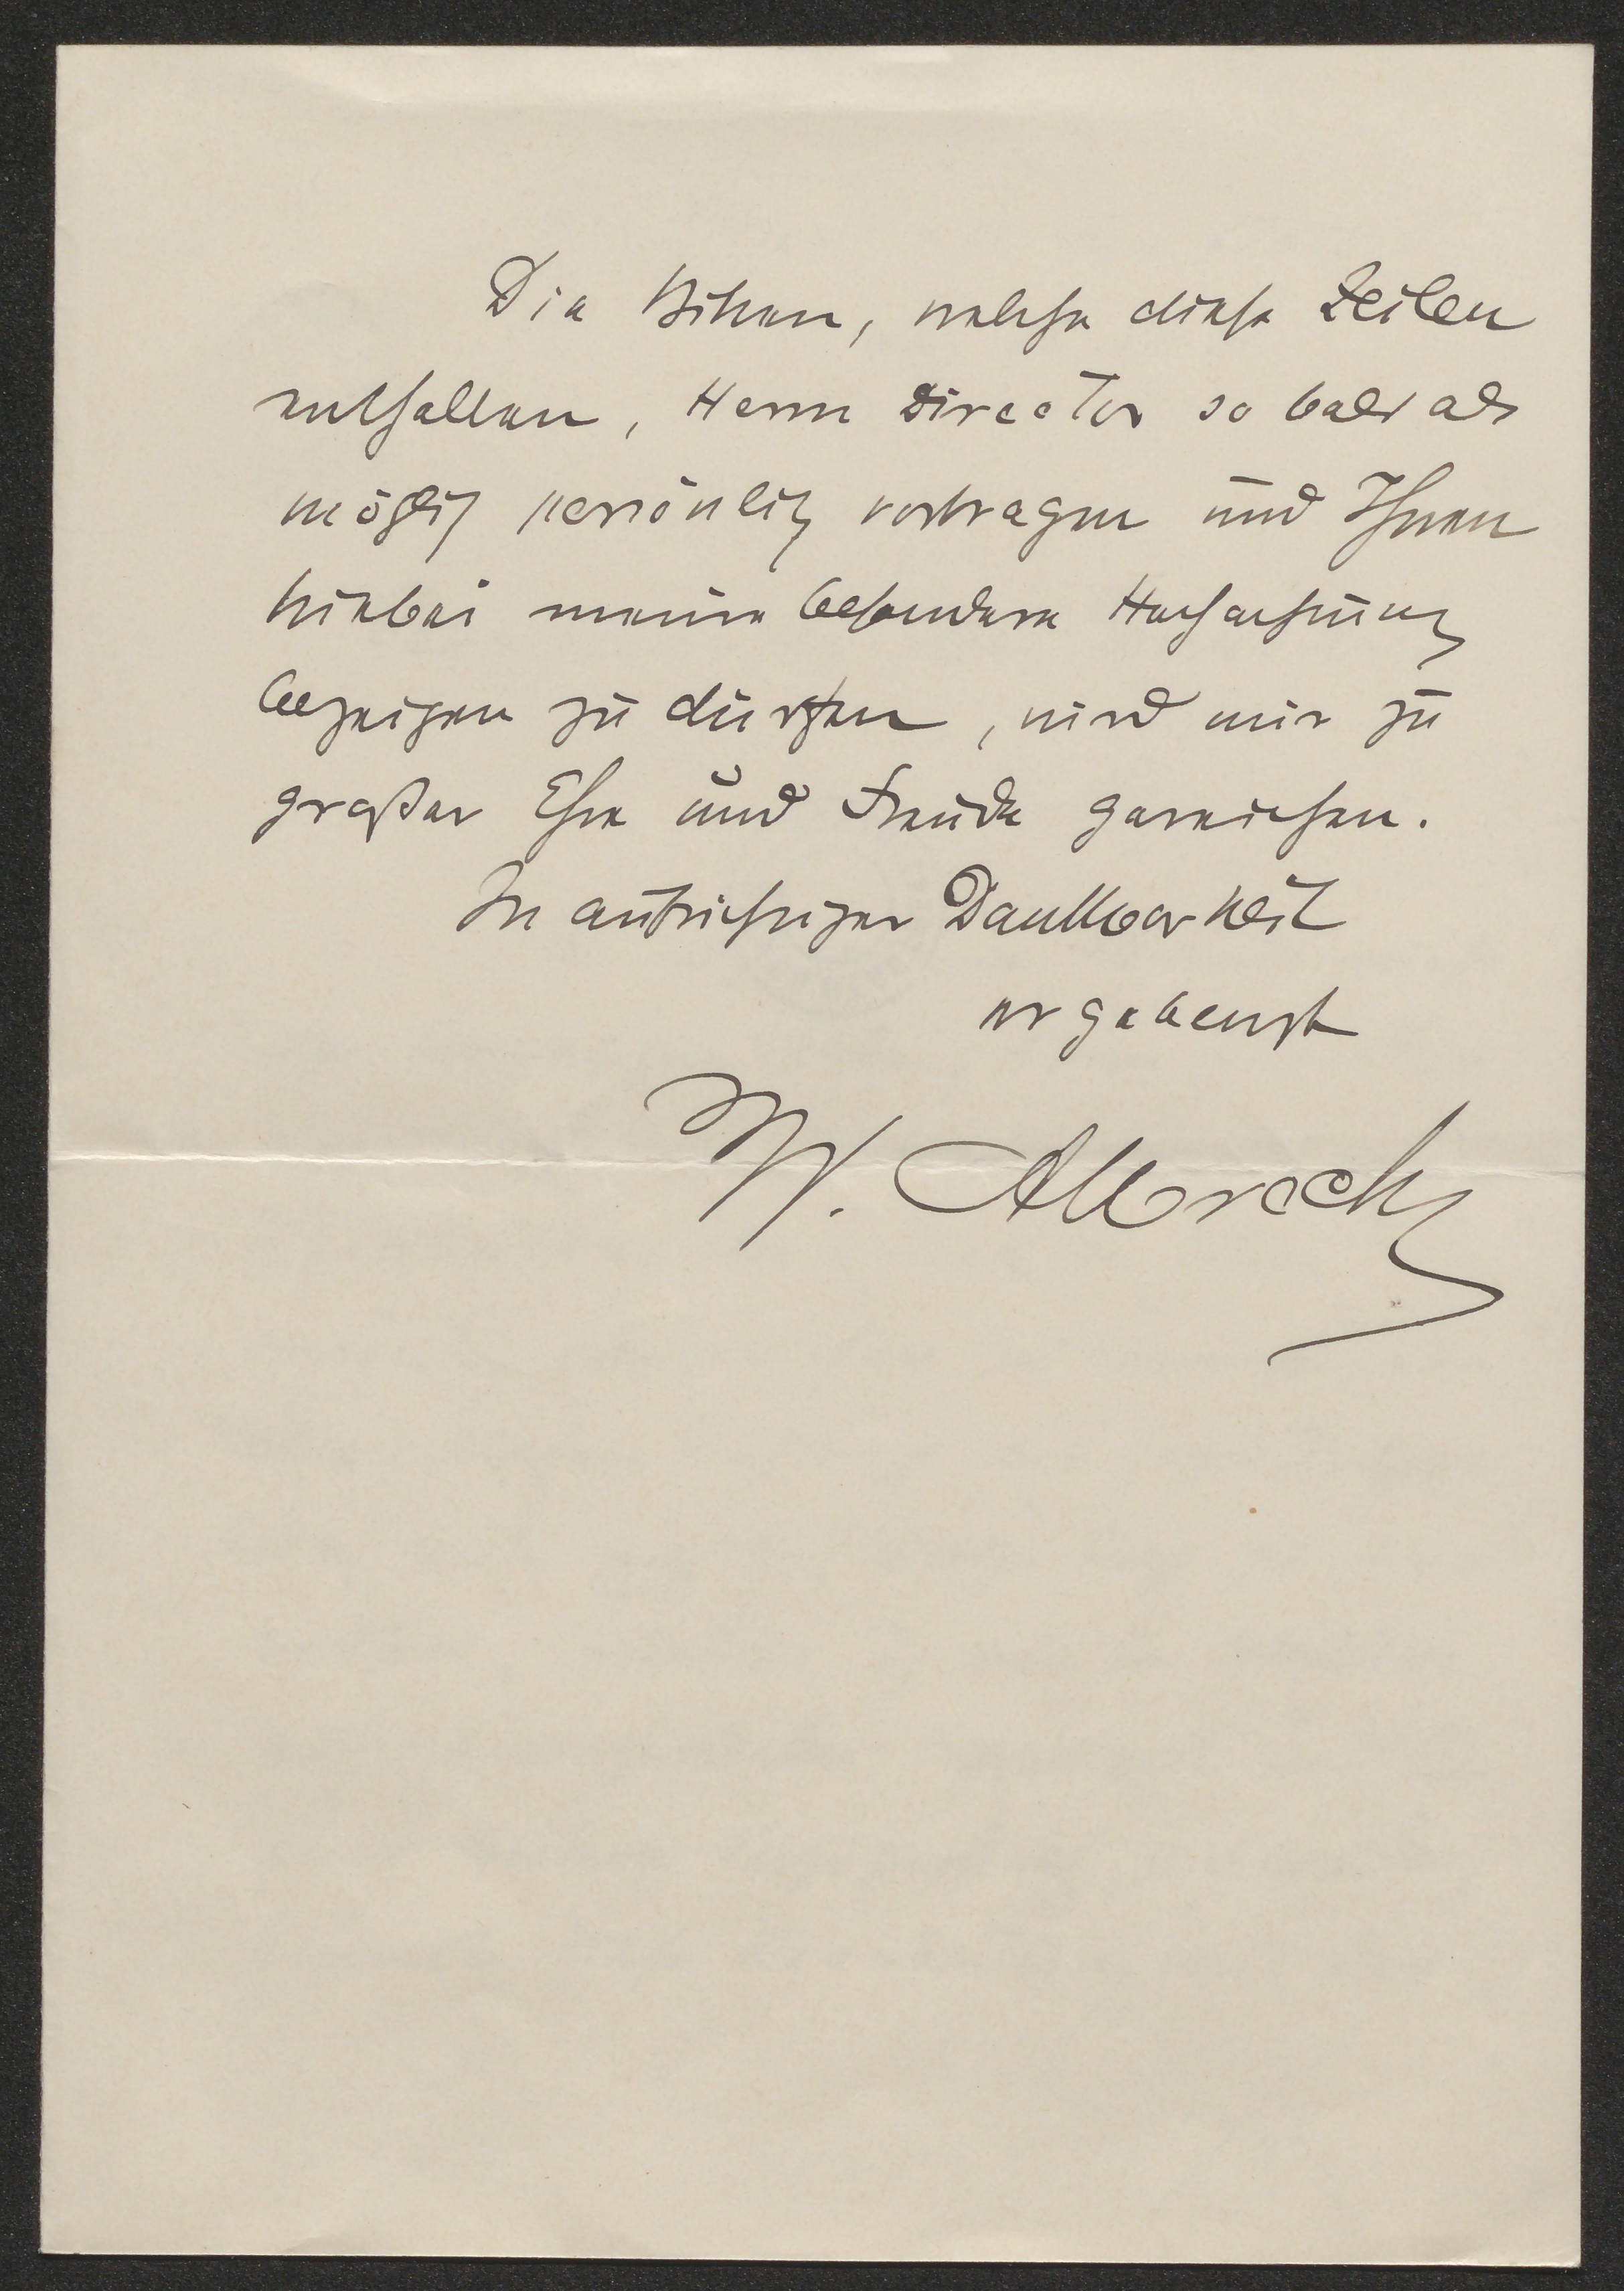 Die Bitten, welche diese Zeilen
enthalten, Herrn Director so bald als
möglich persönlich vortragen und Ihnen
hiebei meine besondere Hochachtung
bezeigen zu dürfen, wird mir zu
großer Ehre und Freude gereichen.
In aufrichtiger Dankbarkeit
ergebenst
W. Albrecht